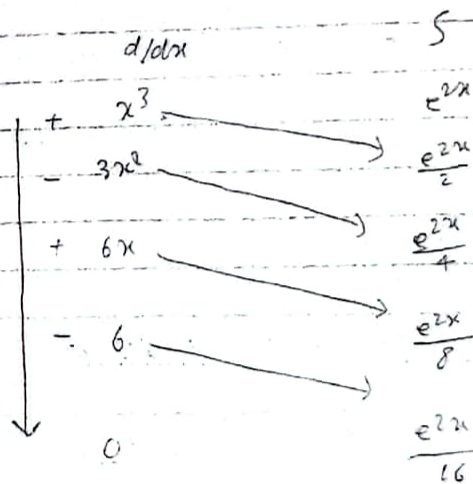 d/dx ∫
+ x³ e^{2x}
- 3x² e^{2x}/2
+ 6x e^{2x}/4
- 6 e^{2x}/8
0 e^{2x}/16